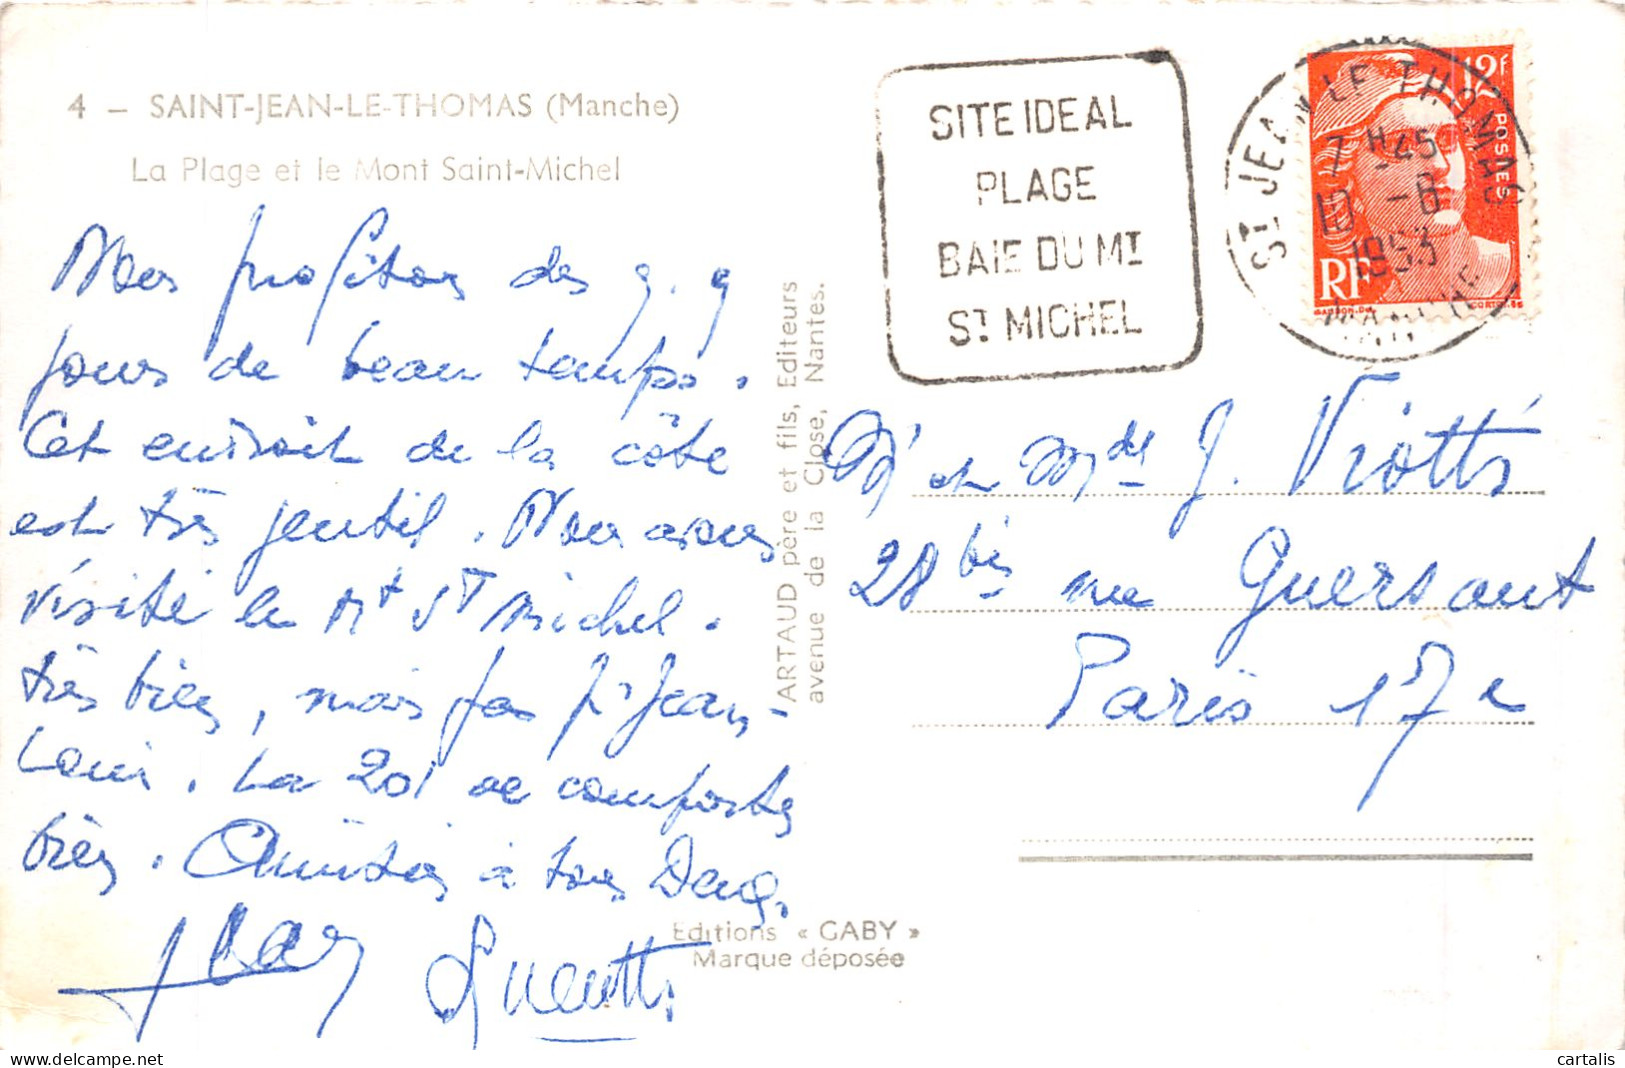 4 – SAINT-JEAN-LE-THOMAS (Manche)
La Plage et le Mont Saint-Michel
Nous profitons des q. q
jours de beau temps.
Cet endroit de la côte
est très gentil. Nous avons
visité le Mt St Michel.
très bien, mais pas pr Jean-
Louis. La 201 se comporte
bien. Amitiés à tous Deux.
SITE IDEAL
PLAGE
BAIE DU MT
ST MICHEL
ST JEAN LE THOMAS
7 H 45
10 -8
1953
MANCHE
12F
POSTES
RF
GANDON.DEL
CORTOT.SC
ARTAUD père et fils, Editeurs
avenue de la Close, Nantes.
Mr et Mde J. Viotti
28 bis rue Guersant
Paris 17e
Editions « GABY »
Marque déposée
cartalis